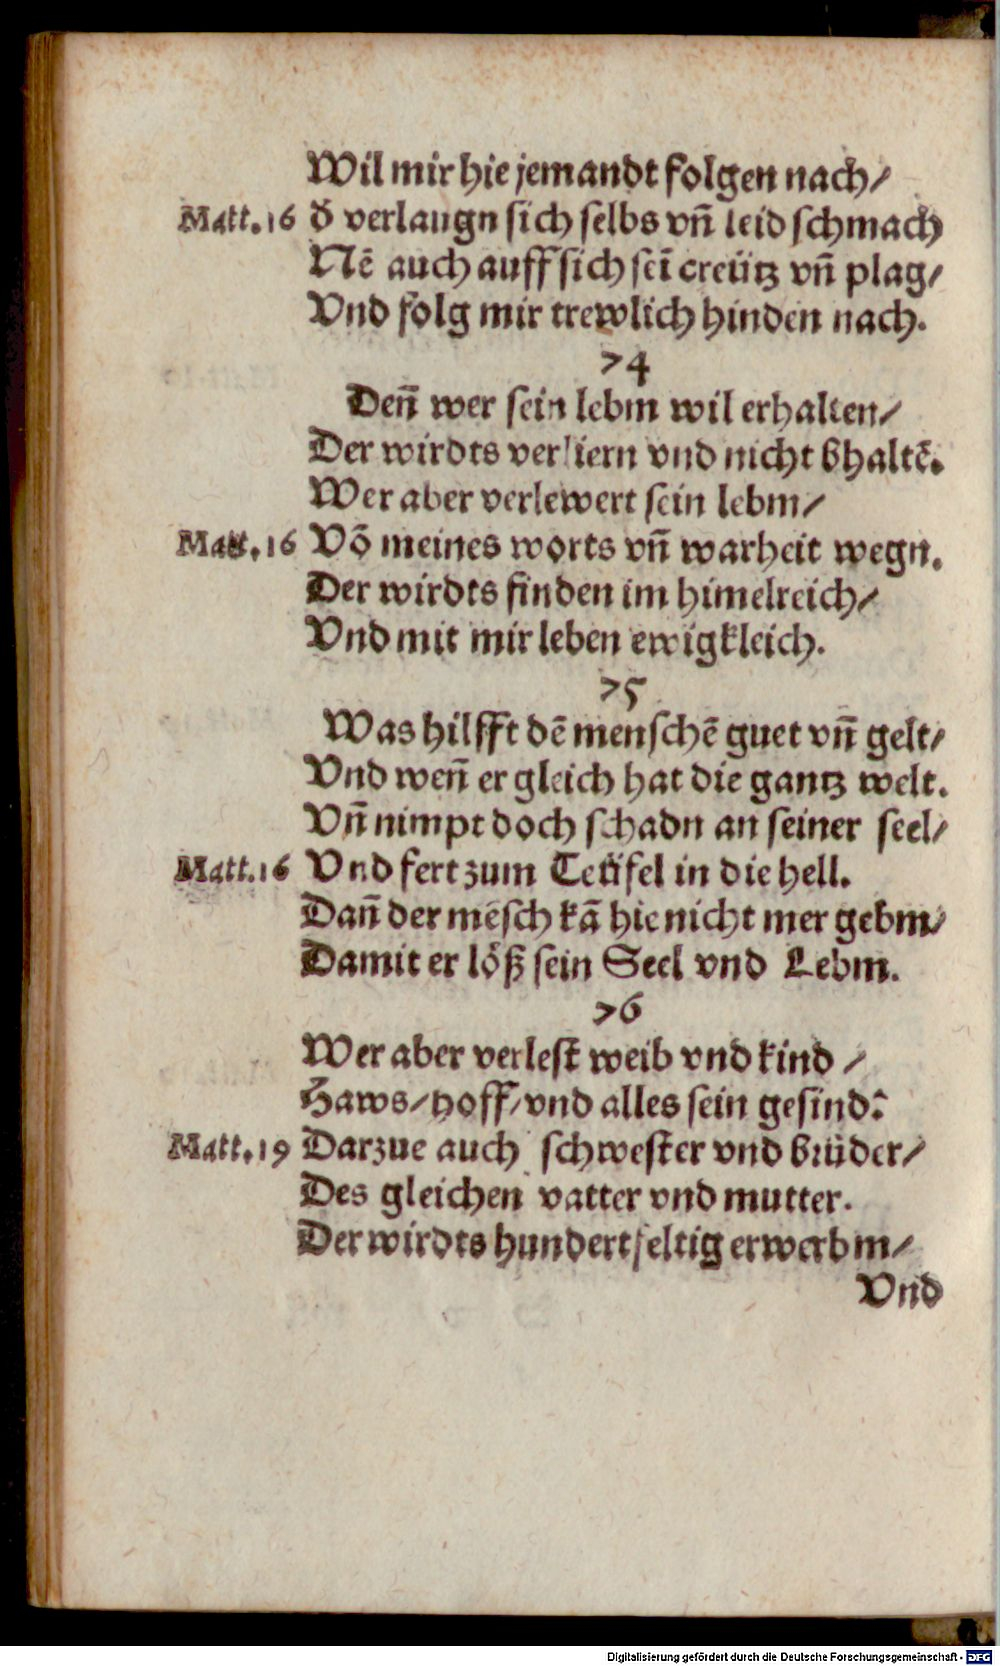 Wil mir hie jemandt folgen nach/
Matt.16 d̄ verlaugn sich selbs vn̄ leid schmach
Nē auch auff sich seī creütz vn̄ plag/
Vnd folg mir trewlich hinden nach.
74
Den̄ wer sein lebm wil erhalten/
Der wirdts verliern vnd nicht bhaltē.
Wer aber verlewert sein lebm/
Matt.16 Vō meines worts vn̄ warheit wegn.
Der wirdts finden im himelreich/
Vnd mit mir leben ewigkleich.
75
Was hilfft dē menschē guet vn̄ gelt/
Vnd wen̄ er gleich hat die gantz welt.
Vn̄ nimpt doch schadn an seiner seel/
Matt.16 Vnd fert zum Teüfel in die hell.
Dan̄ der mēsch kā hie nicht mer gebm/
Damit er löß sein Seel vnd Lebm.
76
Wer aber verlest weib vnd kind /
Haws/hoff/vnd alles sein gesind:
Matt.19 Darzue auch schwester vnd brüder/
Des gleichen vatter vnd mutter.
Der wirdts hundertfeltig erwerbm/
Vnd
Digitalisierung gefördert durch die Deutsche Forschungsgemeinschaft - DFG